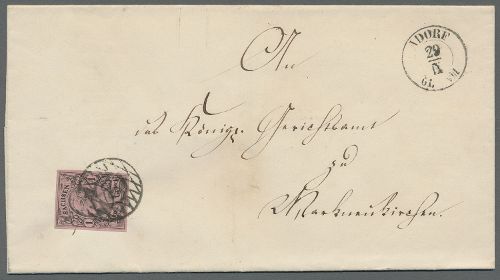 ADORF
29
IX
61.
An
das Königl. Gerichtsamt
zu
Markneukirchen.
SACHSEN